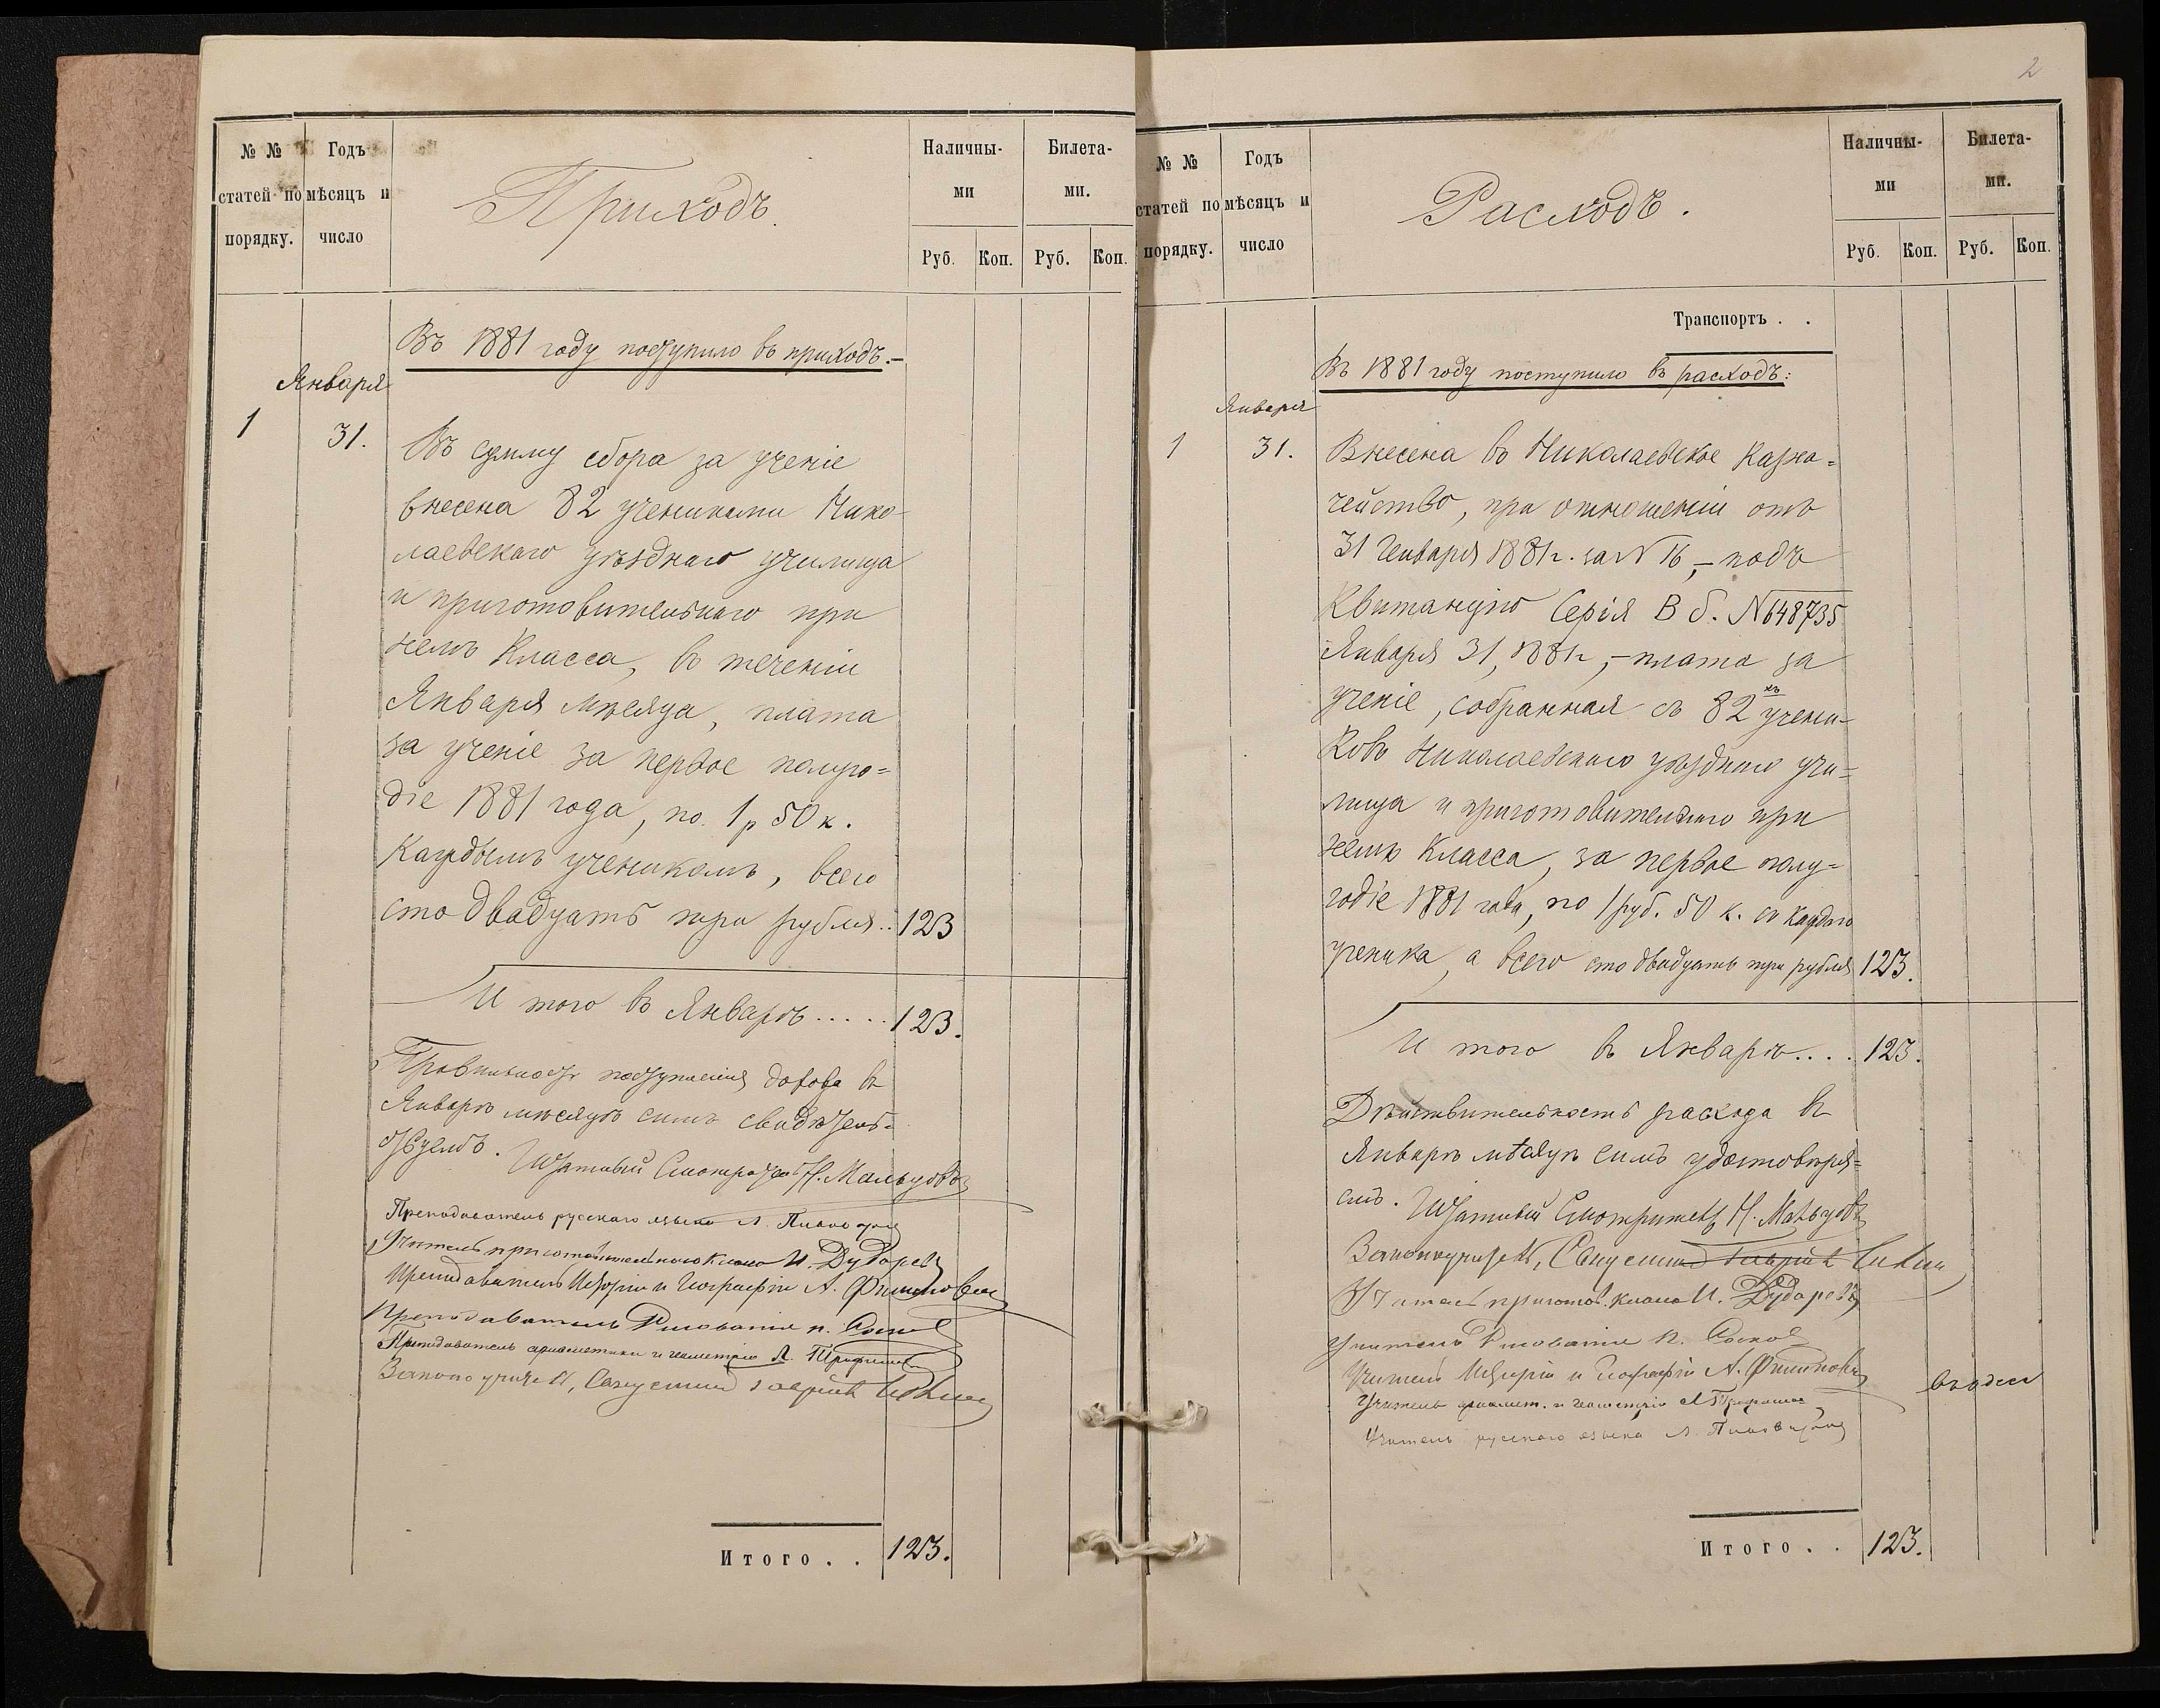 № №
статей по
порядку.
Годъ
мѣсяцъ и
число
Приходъ.
Наличны-
ми
Билета-
ми.
Руб.
Коп.
Руб.
Коп.
Въ 1881 году поступило въ приходъ.-
Января
1
31.
Въ сумму сбора за ученіе
внесена 82 учениками Нико-
лаевскаго уѣзднаго училища
и приготовительнаго при
немъ класса, въ теченіи
Января мѣсяца, плата
за ученіе за первое полуго=
діе 1881 года, по 1р 50 к.
каждымъ ученикомъ, всего
сто двадцать три рубля.. 123
И того въ Январѣ..... 123.
Правильность поступленія дохода въ
Январѣ мѣсяцѣ симъ свидѣтель=
ствуемъ. Штатный Смотритель Н. Мальцовъ
Преподаватель русскаго языка Л.
Учитель приготовительнаго класса И. Дударевъ
Преподаватель Исторіи и Географіи А.
Преподаватель Рисованія п.
Преподаватель ариѳметики и геометріи Л.
Законоучитель, Священникъ Гавріилъ
Итого . . 123.
2
№ №
статей по
порядку.
Годъ
мѣсяцъ и
число
Расходъ.
Наличны-
ми
Билета-
ми.
Руб.
Коп.
Руб.
Коп.
Транспортъ . .
Въ 1881 году поступило въ расходъ:
Января
1
31.
Внесена въ Николаевское Казна=
чейство, при отношеніи отъ
31 Генваря 1881 г. за № 16, - подъ
квитанцію Серія В б. № 648735
Января 31, 1881 г, - плата за
ученіе, собранная съ 82хъ учени-
ковъ Николаевскаго уѣзднаго учи=
лища и приготовительнаго при
немъ класса, за первое полу=
годіе 1881 года, по 1 руб. 50 к. съ каждаго
ученика, а всего сто двадцать три рубля 123.
И того въ Январѣ.... 123.
Дѣйствительность расхода въ
Январѣ мѣсяцѣ симъ удостовѣря=
емъ. Штатный Смотритель Н. Мальцовъ
Законоучитель, Священникъ Гавріилъ
Учитель приготов. класса И. Дударевъ
Учитель Рисованія п.
Учитель Исторіи и Географіи А.
Учитель ариѳмет. и геометріи Л.
Учитель русскаго языка Л.
Итого . . 123.